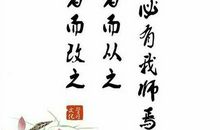 必有我师焉
者而从之
者而改之